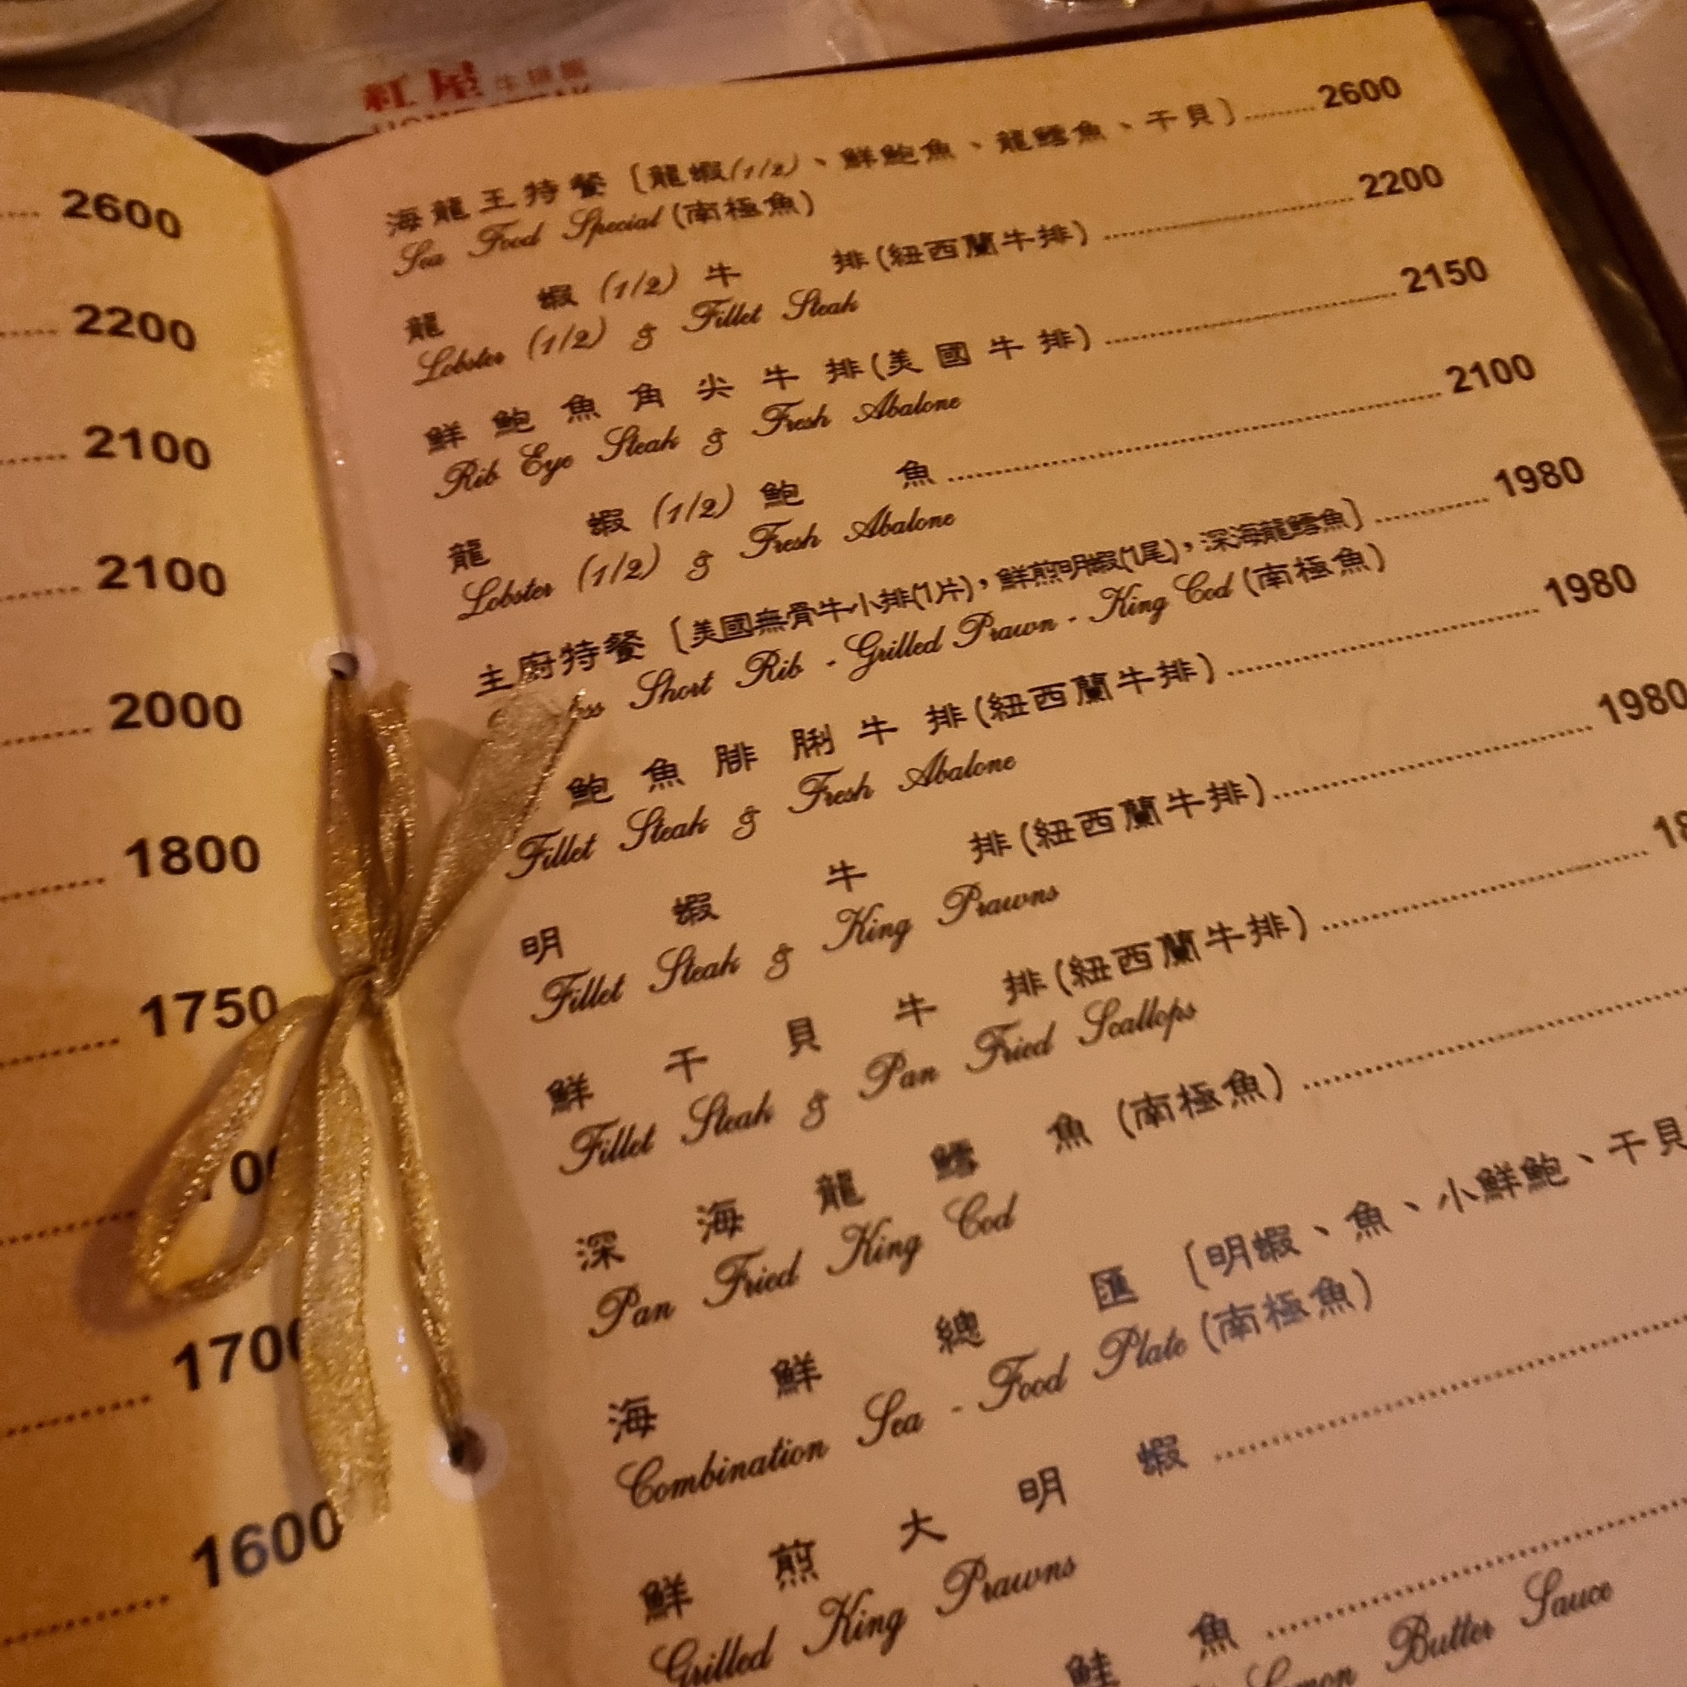 紅屋 牛排館
2600
2200
2100
2100
2000
1800
1750
1700
1600
海龍王特餐〔龍蝦(1/2)、鮮鮑魚、龍鱈魚、干貝〕 2600
Sea Food Special (南極魚)
龍 蝦 (1/2) 牛 排(紐西蘭牛排) 2200
Lobster (1/2) & Fillet Steak
鮮 鮑 魚 角 尖 牛 排(美 國 牛 排) 2150
Rib Eye Steak & Fresh Abalone
龍 蝦 (1/2) 鮑 魚 2100
Lobster (1/2) & Fresh Abalone
主廚特餐〔美國無骨牛小排(1片),鮮煎明蝦(1尾),深海龍鱈魚〕 1980
Short Rib - Grilled Prawn - King Cod (南極魚)
鮑 魚 腓 脷 牛 排(紐西蘭牛排) 1980
Fillet Steak & Fresh Abalone
明 蝦 牛 排(紐西蘭牛排) 1980
Fillet Steak & King Prawns
鮮 干 貝 牛 排(紐西蘭牛排)
Fillet Steak & Pan Fried Scallops
深 海 龍 鱈 魚 (南極魚)
Pan Fried King Cod
海 鮮 總 匯 〔明蝦、魚、小鮮鮑、干貝
Combination Sea - Food Plate (南極魚)
鮮 煎 大 明 蝦
Grilled King Prawns
鮭 魚
Lemon Butter Sauce